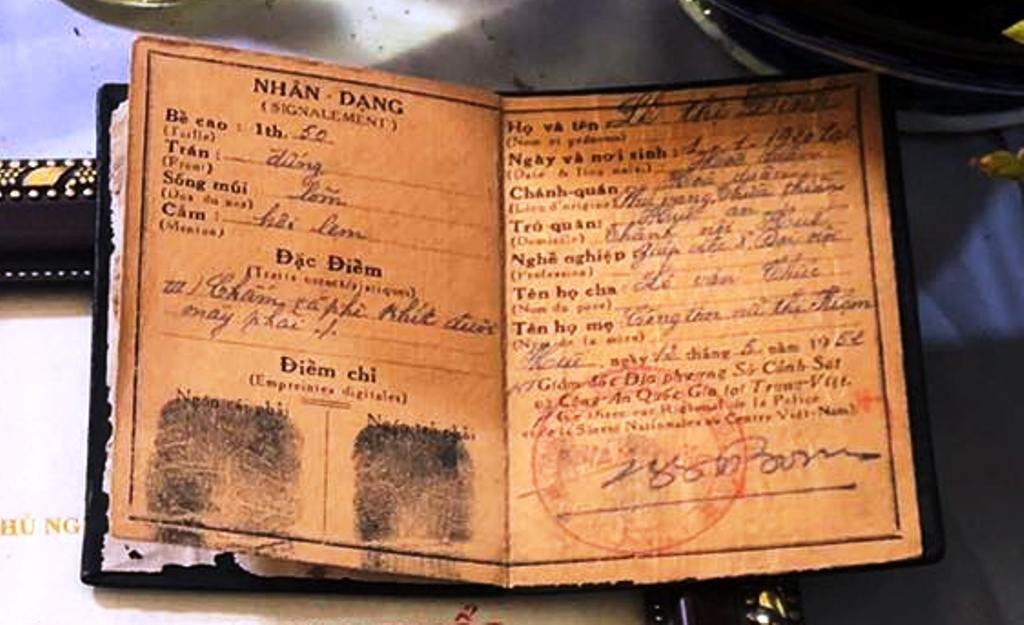 NHẬN - DẠNG
( SIGNALEMENT )
Bề cao : 1th. 50
(Taille)
Trán : đứng
(Front)
Sống mũi lõm
(Dos du nez)
Cằm : hái lem
(Menton)
Đặc Điểm
(Traits caractéristiques)
Chấm cà phê khít dưới
mày phải ./.
Điểm chỉ
(Empreintes digitales)
Ngón cái phải
Họ và tên Lê thị Dinh
(Nom et prénoms)
Ngày và nơi sinh :
(Date & lieu nais.)
Chánh-quán Phú vang Thừa thiên
(Lieu d'origine)
Trú quán: Thành nội Huế
(Domicile)
Nghề nghiệp Giúp việc
(Profession)
Tên họ cha : Lê văn Thức
(Nom du père)
Tên họ mẹ : Công tôn nữ thị
(Nom de la mère)
Huế ngày 12 tháng 5 năm 1952
Giám đốc Địa phương Sở Cảnh Sát
và Công-An Quốc Gia tại Trung-Việt.
(Le Directeur Régional de la Police
et de la Sûreté Nationales au Centre Việt-Nam)
HỦ NG